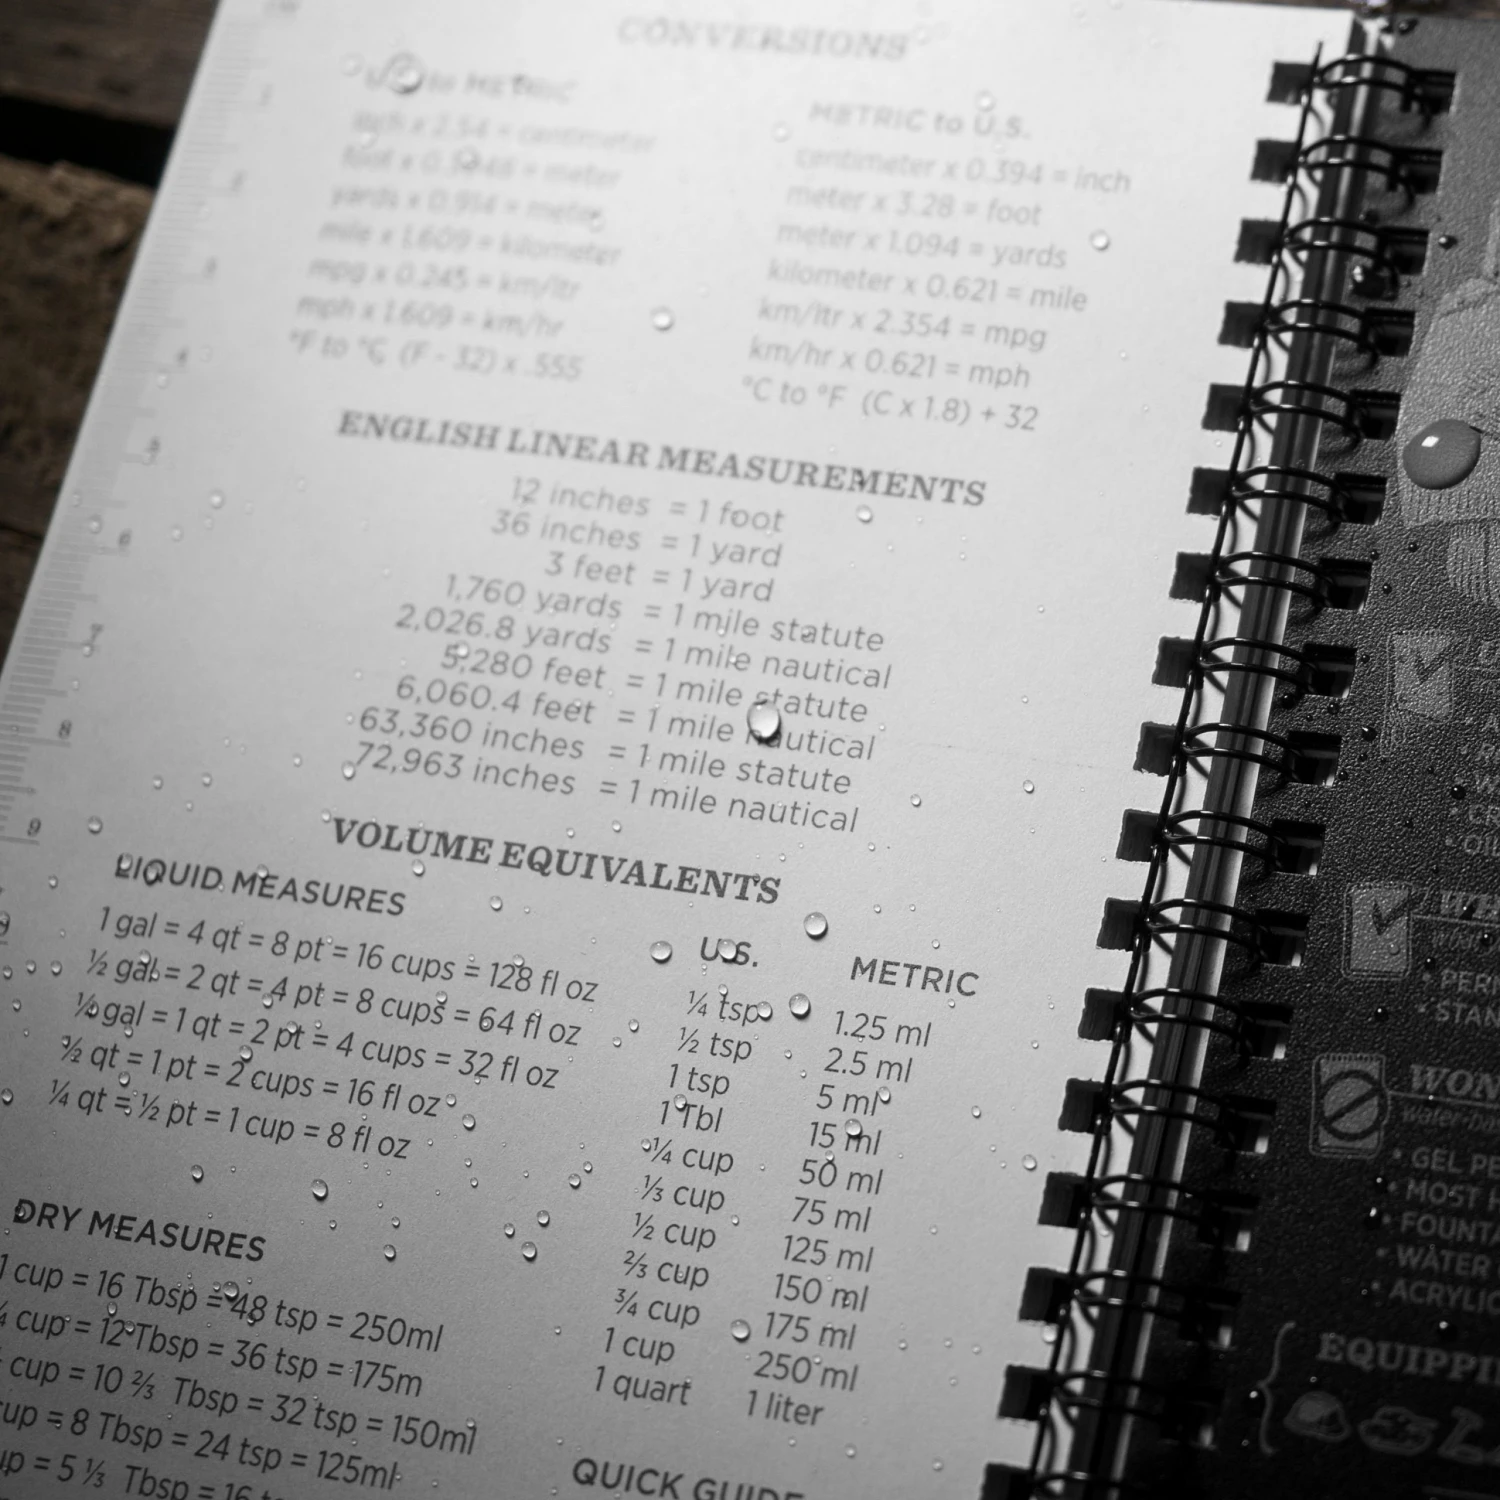 CONVERSIONS
U.S. to METRIC
inch x 2.54 = centimeter
foot x 0.3048 = meter
yards x 0.914 = meter
mile x 1.609 = kilometer
mpg x 0.245 = km/ltr
mph x 1.609 = km/hr
°F to °C (F - 32) x .555
METRIC to U.S.
centimeter x 0.394 = inch
meter x 3.28 = foot
meter x 1.094 = yards
kilometer x 0.621 = mile
km/ltr x 2.354 = mpg
km/hr x 0.621 = mph
°C to °F (C x 1.8) + 32
ENGLISH LINEAR MEASUREMENTS
12 inches = 1 foot
36 inches = 1 yard
3 feet = 1 yard
1,760 yards = 1 mile statute
2,026.8 yards = 1 mile nautical
5,280 feet = 1 mile statute
6,060.4 feet = 1 mile nautical
63,360 inches = 1 mile statute
72,963 inches = 1 mile nautical
VOLUME EQUIVALENTS
LIQUID MEASURES
1 gal = 4 qt = 8 pt = 16 cups = 128 fl oz
½ gal = 2 qt = 4 pt = 8 cups = 64 fl oz
gal = 1 qt = 2 pt = 4 cups = 32 fl oz
qt = 1 pt = 2 cups = 16 fl oz
¼ qt = ½ pt = 1 cup = 8 fl oz
U.S. METRIC
¼ tsp 1.25 ml
½ tsp 2.5 ml
1 tsp 5 ml
1 Tbl 15 ml
¼ cup 50 ml
⅓ cup 75 ml
½ cup 125 ml
⅔ cup 150 ml
¾ cup 175 ml
1 cup 250 ml
1 quart 1 liter
DRY MEASURES
1 cup = 16 Tbsp = 48 tsp = 250ml
cup = 12 Tbsp = 36 tsp = 175m
cup = 10 ⅔ Tbsp = 32 tsp = 150ml
cup = 8 Tbsp = 24 tsp = 125ml
= 5 ⅓ Tbsp = 16
QUICK GUIDE
1
2
3
4
5
6
7
8
9
• GEL
• MOST
• WATER